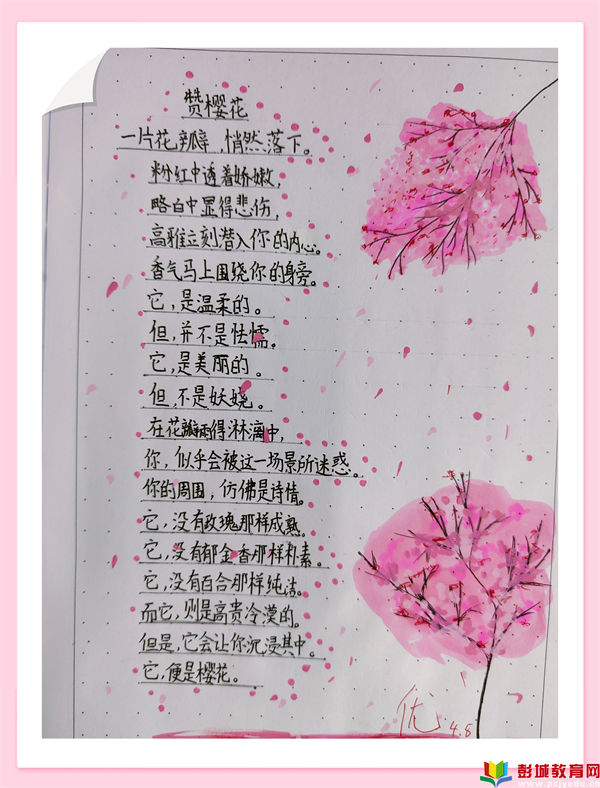 赞樱花
一片花瓣,悄然落下。
粉红中透着娇嫩,
略白中显得悲伤,
高雅立刻潜入你的内心。
香气马上围绕你的身旁。
它,是温柔的。
但,并不是怯懦。
它,是美丽的。
但,不是妖娆。
在花瓣雨得淋漓中,
你,似乎会被这一场景所迷惑。
你的周围,仿佛是诗情。
它,没有玫瑰那样成熟。
它,没有郁金香那样朴素。
它,没有百合那样纯洁。
而它,则是高贵冷漠的。
但是,它会让你沉浸其中。
它,便是樱花。
优 4.8
彭城教育网
www.pcjyedu.cn